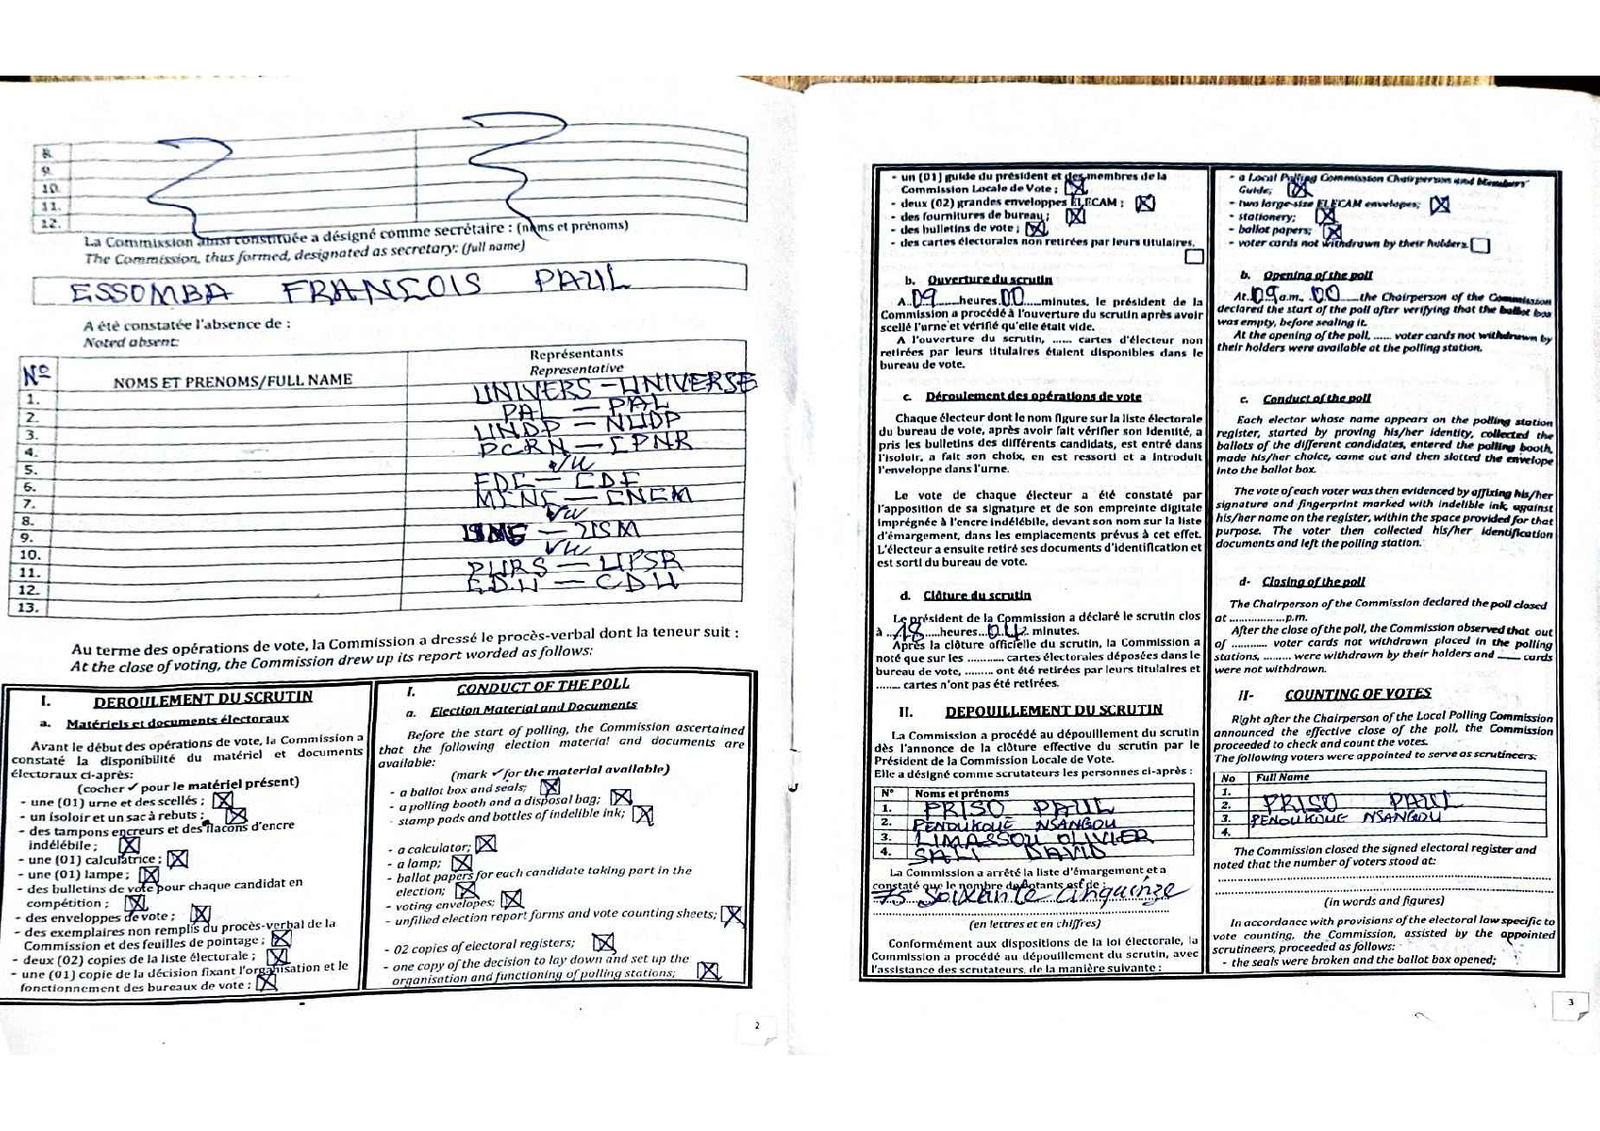 8.
9.
10.
11.
12.
La Commission ainsi constituée a désigné comme secrétaire : (noms et prénoms)
The Commission, thus formed, designated as secretary: (full name)
ESSOMBA FRANCOIS PAUL
A été constatée l'absence de :
Noted absent:
Nº NOMS ET PRENOMS/FULL NAME Représentants
Representative
1. UNIVERS – UNIVERSE
2. PAL – PAL
3. UNDP – NUDP
4. PCRN – CPNR
5.
6. FDC – CDF
7. MCNC – CNCM
8.
9. – JISM
10.
11. PURS – UPSR
12. E.D.U – CDU
13.
Au terme des opérations de vote, la Commission a dressé le procès-verbal dont la teneur suit :
At the close of voting, the Commission drew up its report worded as follows:
I. DEROULEMENT DU SCRUTIN
a. Matériels et documents électoraux
Avant le début des opérations de vote, la Commission a
constaté la disponibilité du matériel et documents
électoraux ci-après:
(cocher ✓ pour le matériel présent)
- une (01) urne et des scellés ;
- un isoloir et un sac à rebuts ;
- des tampons encreurs et des flacons d'encre
indélébile ;
- une (01) calculatrice ;
- une (01) lampe ;
- des bulletins de vote pour chaque candidat en
compétition ;
- des enveloppes de vote ;
- des exemplaires non remplis du procès-verbal de la
Commission et des feuilles de pointage ;
- deux (02) copies de la liste électorale ;
- une (01) copie de la décision fixant l'organisation et le
fonctionnement des bureaux de vote :
I. CONDUCT OF THE POLL
a. Election Material and Documents
Before the start of polling, the Commission ascertained
that the following election material and documents are
available:
(mark ✓ for the material available)
- a ballot box and seals;
- a polling booth and a disposal bag;
- stamp pads and bottles of indelible ink;
- a calculator;
- a lamp;
- ballot papers for each candidate taking part in the
election;
- voting envelopes;
- unfilled election report forms and vote counting sheets;
- 02 copies of electoral registers;
- one copy of the decision to lay down and set up the
organisation and functioning of polling stations;
2
- un (01) guide du président et des membres de la
Commission Locale de Vote ;
- deux (02) grandes enveloppes ELECAM ;
- des fournitures de bureau ;
- des bulletins de vote ;
- des cartes électorales non retirées par leurs titulaires.
b. Ouverture du scrutin
A..09......heures.00.....minutes, le président de la
Commission a procédé à l'ouverture du scrutin après avoir
scellé l'urne et vérifié qu'elle était vide.
A l'ouverture du scrutin, ...... cartes d'électeur non
retirées par leurs titulaires étaient disponibles dans le
bureau de vote.
c. Déroulement des opérations de vote
Chaque électeur dont le nom figure sur la liste électorale
du bureau de vote, après avoir fait vérifier son identité, a
pris les bulletins des différents candidats, est entré dans
l'isoloir, a fait son choix, en est ressorti et a introduit
l'enveloppe dans l'urne.
Le vote de chaque électeur a été constaté par
l'apposition de sa signature et de son empreinte digitale
imprégnée à l'encre indélébile, devant son nom sur la liste
d'émargement, dans les emplacements prévus à cet effet.
L'électeur a ensuite retiré ses documents d'identification et
est sorti du bureau de vote.
d. Clôture du scrutin
Le président de la Commission a déclaré le scrutin clos
à ..18.....heures..04.. minutes.
Après la clôture officielle du scrutin, la Commission a
noté que sur les ........... cartes électorales déposées dans le
bureau de vote, ........ ont été retirées par leurs titulaires et
........ cartes n'ont pas été retirées.
II. DEPOUILLEMENT DU SCRUTIN
La Commission a procédé au dépouillement du scrutin
dès l'annonce de la clôture effective du scrutin par le
Président de la Commission Locale de Vote.
Elle a désigné comme scrutateurs les personnes ci-après :
N° Noms et prénoms
1. PRISO PAUL
2. PENDUKOUE NSANGOU
3. LIMASSOU OLIVIER
4. SALI DAVID
La Commission a arrêté la liste d'émargement et a
constaté que le nombre de votants est de :
75 Soixante cinquinze
(en lettres et en chiffres)
Conformément aux dispositions de la loi électorale, la
Commission a procédé au dépouillement du scrutin, avec
l'assistance des scrutateurs, de la manière suivante :
- a Local Polling Commission Chairperson and Members'
Guide;
- two large-size ELECAM envelopes;
- stationery;
- ballot papers;
- voter cards not withdrawn by their holders.
b. Opening of the poll
At.09a.m. 00....the Chairperson of the Commission
declared the start of the poll after verifying that the ballot box
was empty, before sealing it.
At the opening of the poll, ...... voter cards not withdrawn by
their holders were available at the polling station.
c. Conduct of the poll
Each elector whose name appears on the polling station
register, started by proving his/her identity, collected the
ballots of the different candidates, entered the polling booth,
made his/her choice, came out and then slotted the envelope
into the ballot box.
The vote of each voter was then evidenced by affixing his/her
signature and fingerprint marked with indelible ink, against
his/her name on the register, within the space provided for that
purpose. The voter then collected his/her identification
documents and left the polling station.
d- Closing of the poll
The Chairperson of the Commission declared the poll closed
at ..................p.m.
After the close of the poll, the Commission observed that out
of ............ voter cards not withdrawn placed in the polling
stations, ......... were withdrawn by their holders and ....... cards
were not withdrawn.
II- COUNTING OF VOTES
Right after the Chairperson of the Local Polling Commission
announced the effective close of the poll, the Commission
proceeded to check and count the votes.
The following voters were appointed to serve as scrutineers:
No Full Name
1.
2. PRISO PAUL
3. PENDUKOUE NSANGOU
4.
The Commission closed the signed electoral register and
noted that the number of voters stood at:
(in words and figures)
In accordance with provisions of the electoral law specific to
vote counting, the Commission, assisted by the appointed
scrutineers, proceeded as follows:
- the seals were broken and the ballot box opened;
3